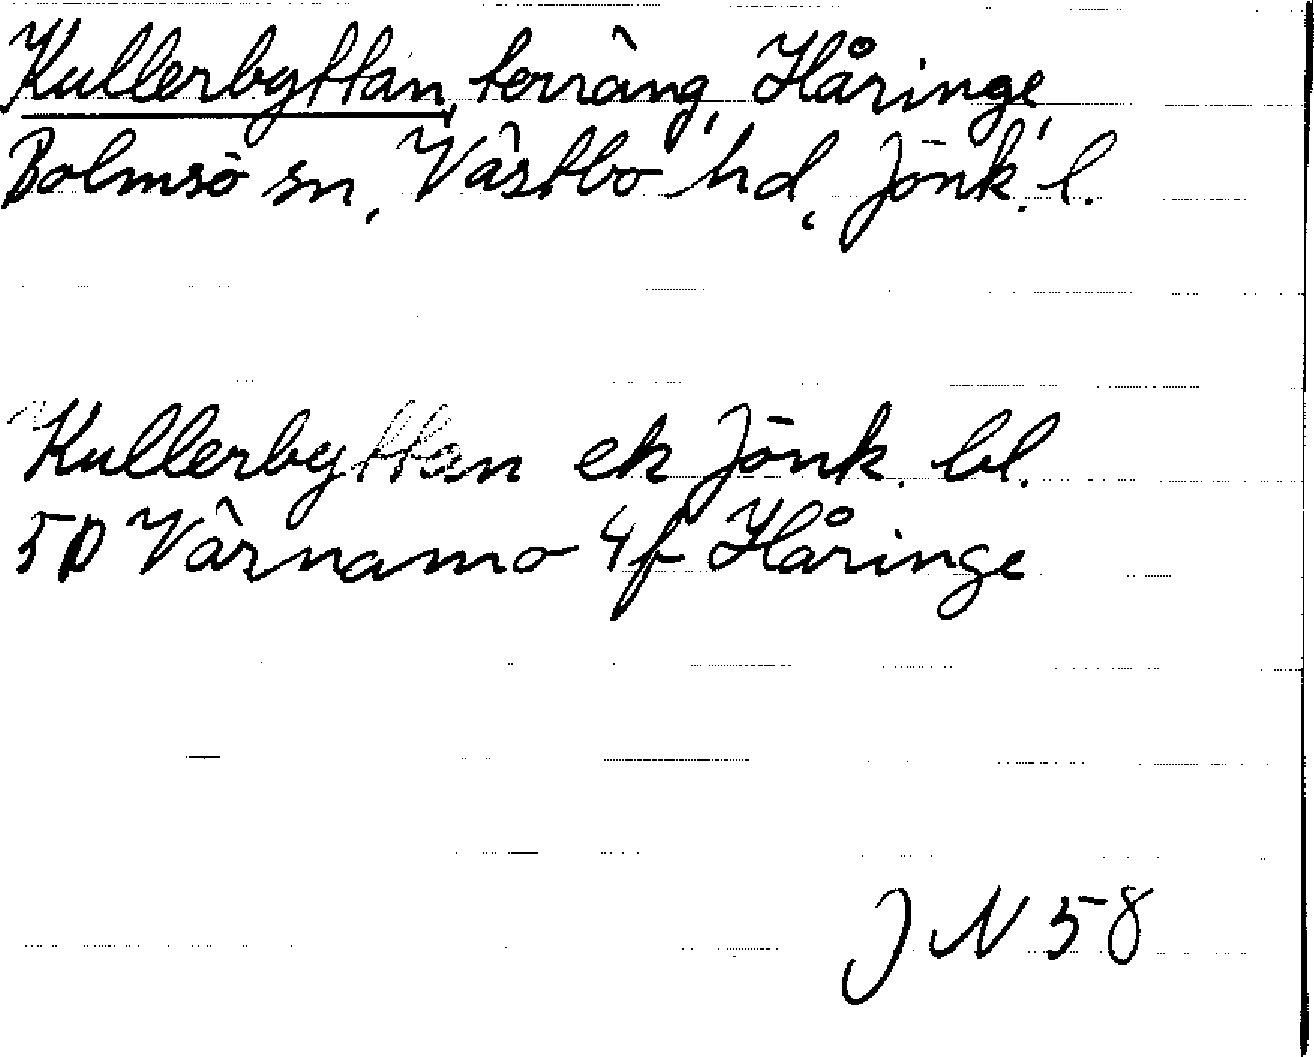 Kullerbyttan, terräng, Håringe,
Bolmsö sn, Västbo hd, Jönk. l.
Kullerbyttan ek Jönk. bl.
5D Värnamo 4f Håringe
JN 58